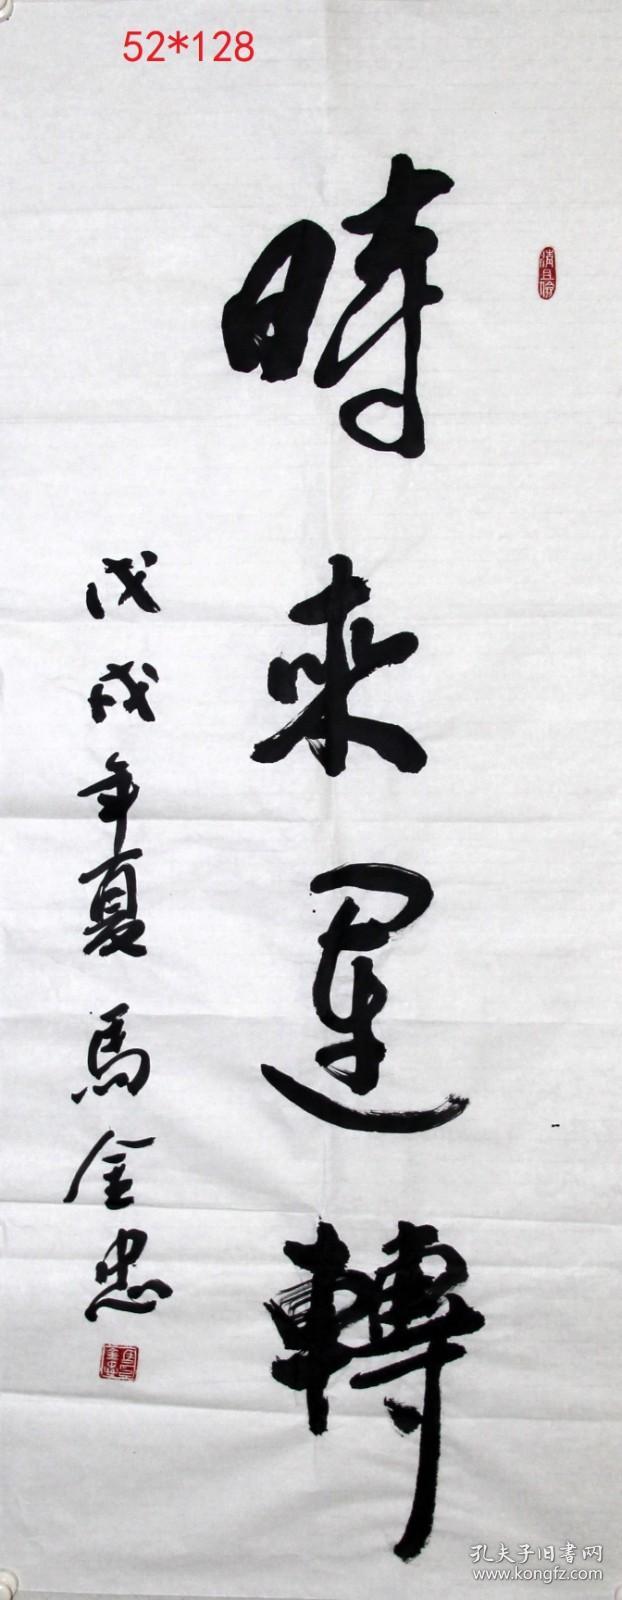 52*128
時來運轉
戊戌年夏馬金忠
孔夫子旧書网
www.kongfz.com